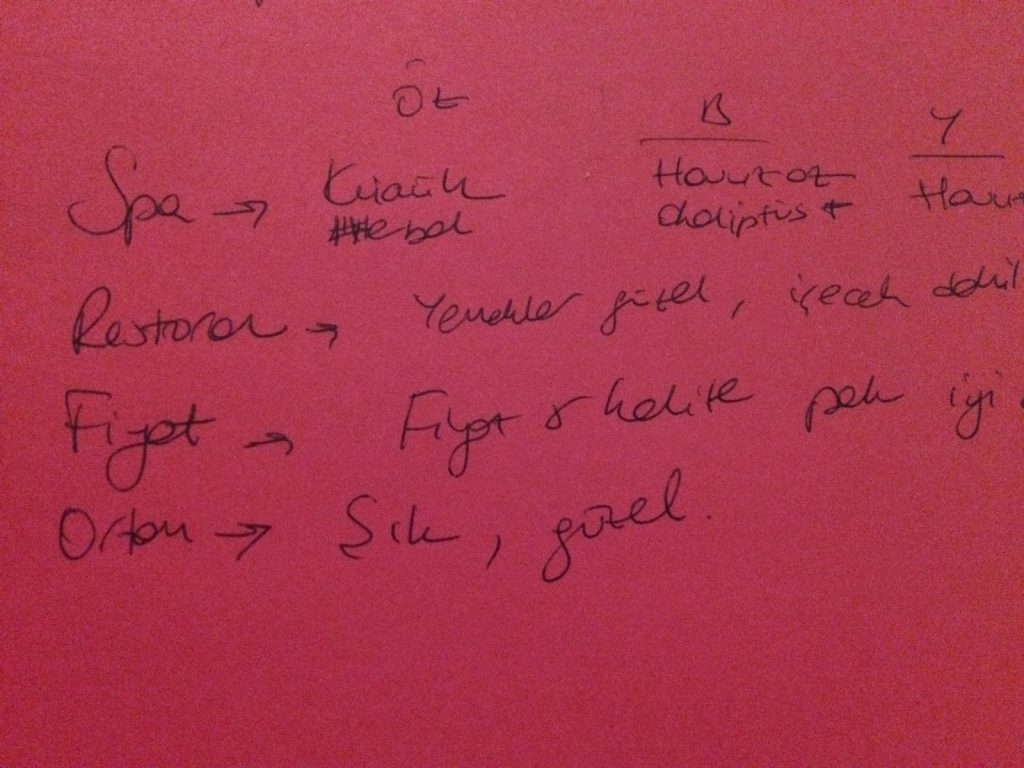 Öz B Y
Spa → Küçük Havuz az Havu
ökaliptüs +
Restoran → Yemekler güzel, içecek dahil
Fiyat → Fiyat & kalite pek iyi
Ortam → Şık, güzel.